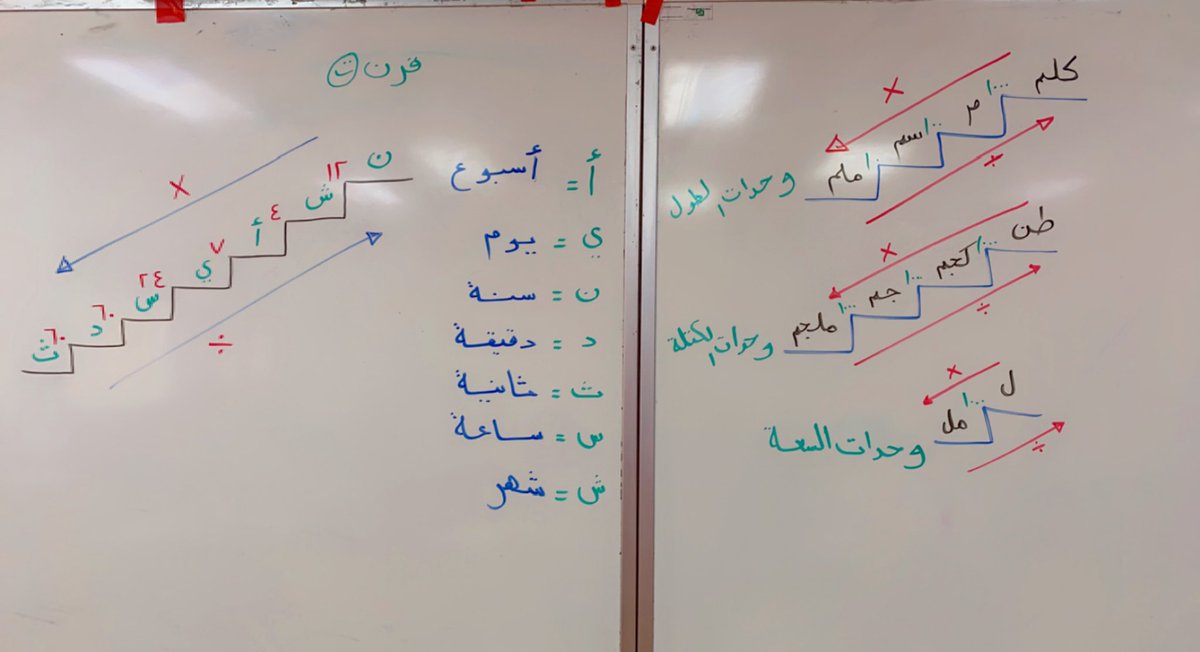 كلم
١٠٠٠
م
١٠٠
سم
١٠
ملم
×
÷
وحدات الطول
طن
١٠٠٠
كجم
١٠٠٠
جم
١٠٠٠
ملجم
×
÷
وحدات الكتلة
ل
١٠٠٠
مل
×
÷
وحدات السعة
قرن
ن
١٢
ش
٤
أ
٧
ي
٢٤
س
٦٠
د
٦٠
ث
×
÷
أ = أسبوع
ي = يوم
ن = سنة
د = دقيقة
ث = ثانية
س = ساعة
ش = شهر